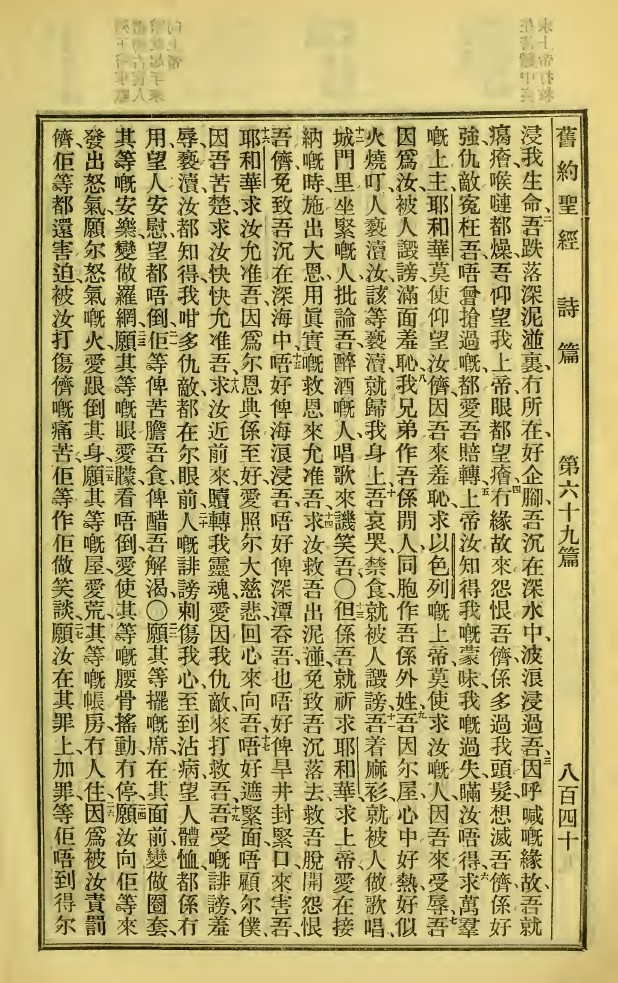 舊約聖經　詩篇　第六十九篇　八百四十
浸我生命、二吾跌落深泥湴裏、冇所在好企腳、吾沉在深水中、波浪浸過吾、三因呼喊嘅緣故、吾就
癘癐、喉嗹都燥、吾仰望我上帝眼都望癐、四冇緣故來怨恨吾儕、係多過我頭髮、想滅吾儕、係好
強、仇敵寃枉吾、唔曾搶過嘅、都愛吾賠轉、五上帝汝知得我嘅蒙昧、我嘅過失瞞汝唔得、六求萬羣
嘅上主耶和華、莫使仰望汝儕、因吾來羞恥、求以色列嘅上帝、莫使求汝嘅人、因吾來受辱、七吾
因爲汝被人譭謗、滿面羞恥、八我兄弟作吾係閒人、同胞作吾係外姓、九吾因尔屋心中好熱、好似
火燒、叮人褻瀆汝、該等褻瀆就歸我身上、十吾哀哭禁食、就被人譭謗、十一吾着麻衫、就被人做歌唱、
十二城門里坐緊嘅人批論吾、醉酒嘅人唱歌來譏笑吾、〇十三但係吾就祈求耶和華、求上帝愛在接
納嘅時、施出大恩、用眞實嘅救恩來允准吾、十四求汝救吾出泥湴、免致吾沉落去、救吾脫開怨恨
吾儕、免致吾沉在深海中、十五唔好俾海浪浸吾、唔好俾深潭吞吾、也唔好俾旱井封緊口來害吾、
十六耶和華求汝允准吾、因爲尔恩典係至好、愛照尔大慈悲回心來向吾、十七唔好遮緊面唔顧尔僕、
因吾苦楚、求汝快快允准吾、十八求汝近前來贖轉我靈魂、愛因我仇敵來打救吾、十九吾受嘅誹謗羞
辱褻瀆、汝都知得、我咁多仇敵都在尔眼前、二十人嘅誹謗刺傷我心、至到沾病、望人體恤都係冇
用、望人安慰望都唔倒、二一佢等俾苦膽吾食、俾醋吾解渴、〇二二願其等擺嘅席、在其面前變做圈套、
其等嘅安樂變做羅網、二三願其等嘅眼愛矇看唔倒、愛使其等嘅腰骨搖動冇停、二四願汝向佢等來
發出怒氣、願尔怒氣嘅火、愛跟倒其身、二五願其等嘅屋愛荒、其等嘅帳房冇人住、二六因爲被汝責罰
儕、佢等都還害迫、被汝打傷儕嘅痛苦、佢等作佢做笑談、二七願汝在其罪上加罪、等佢唔到得尔